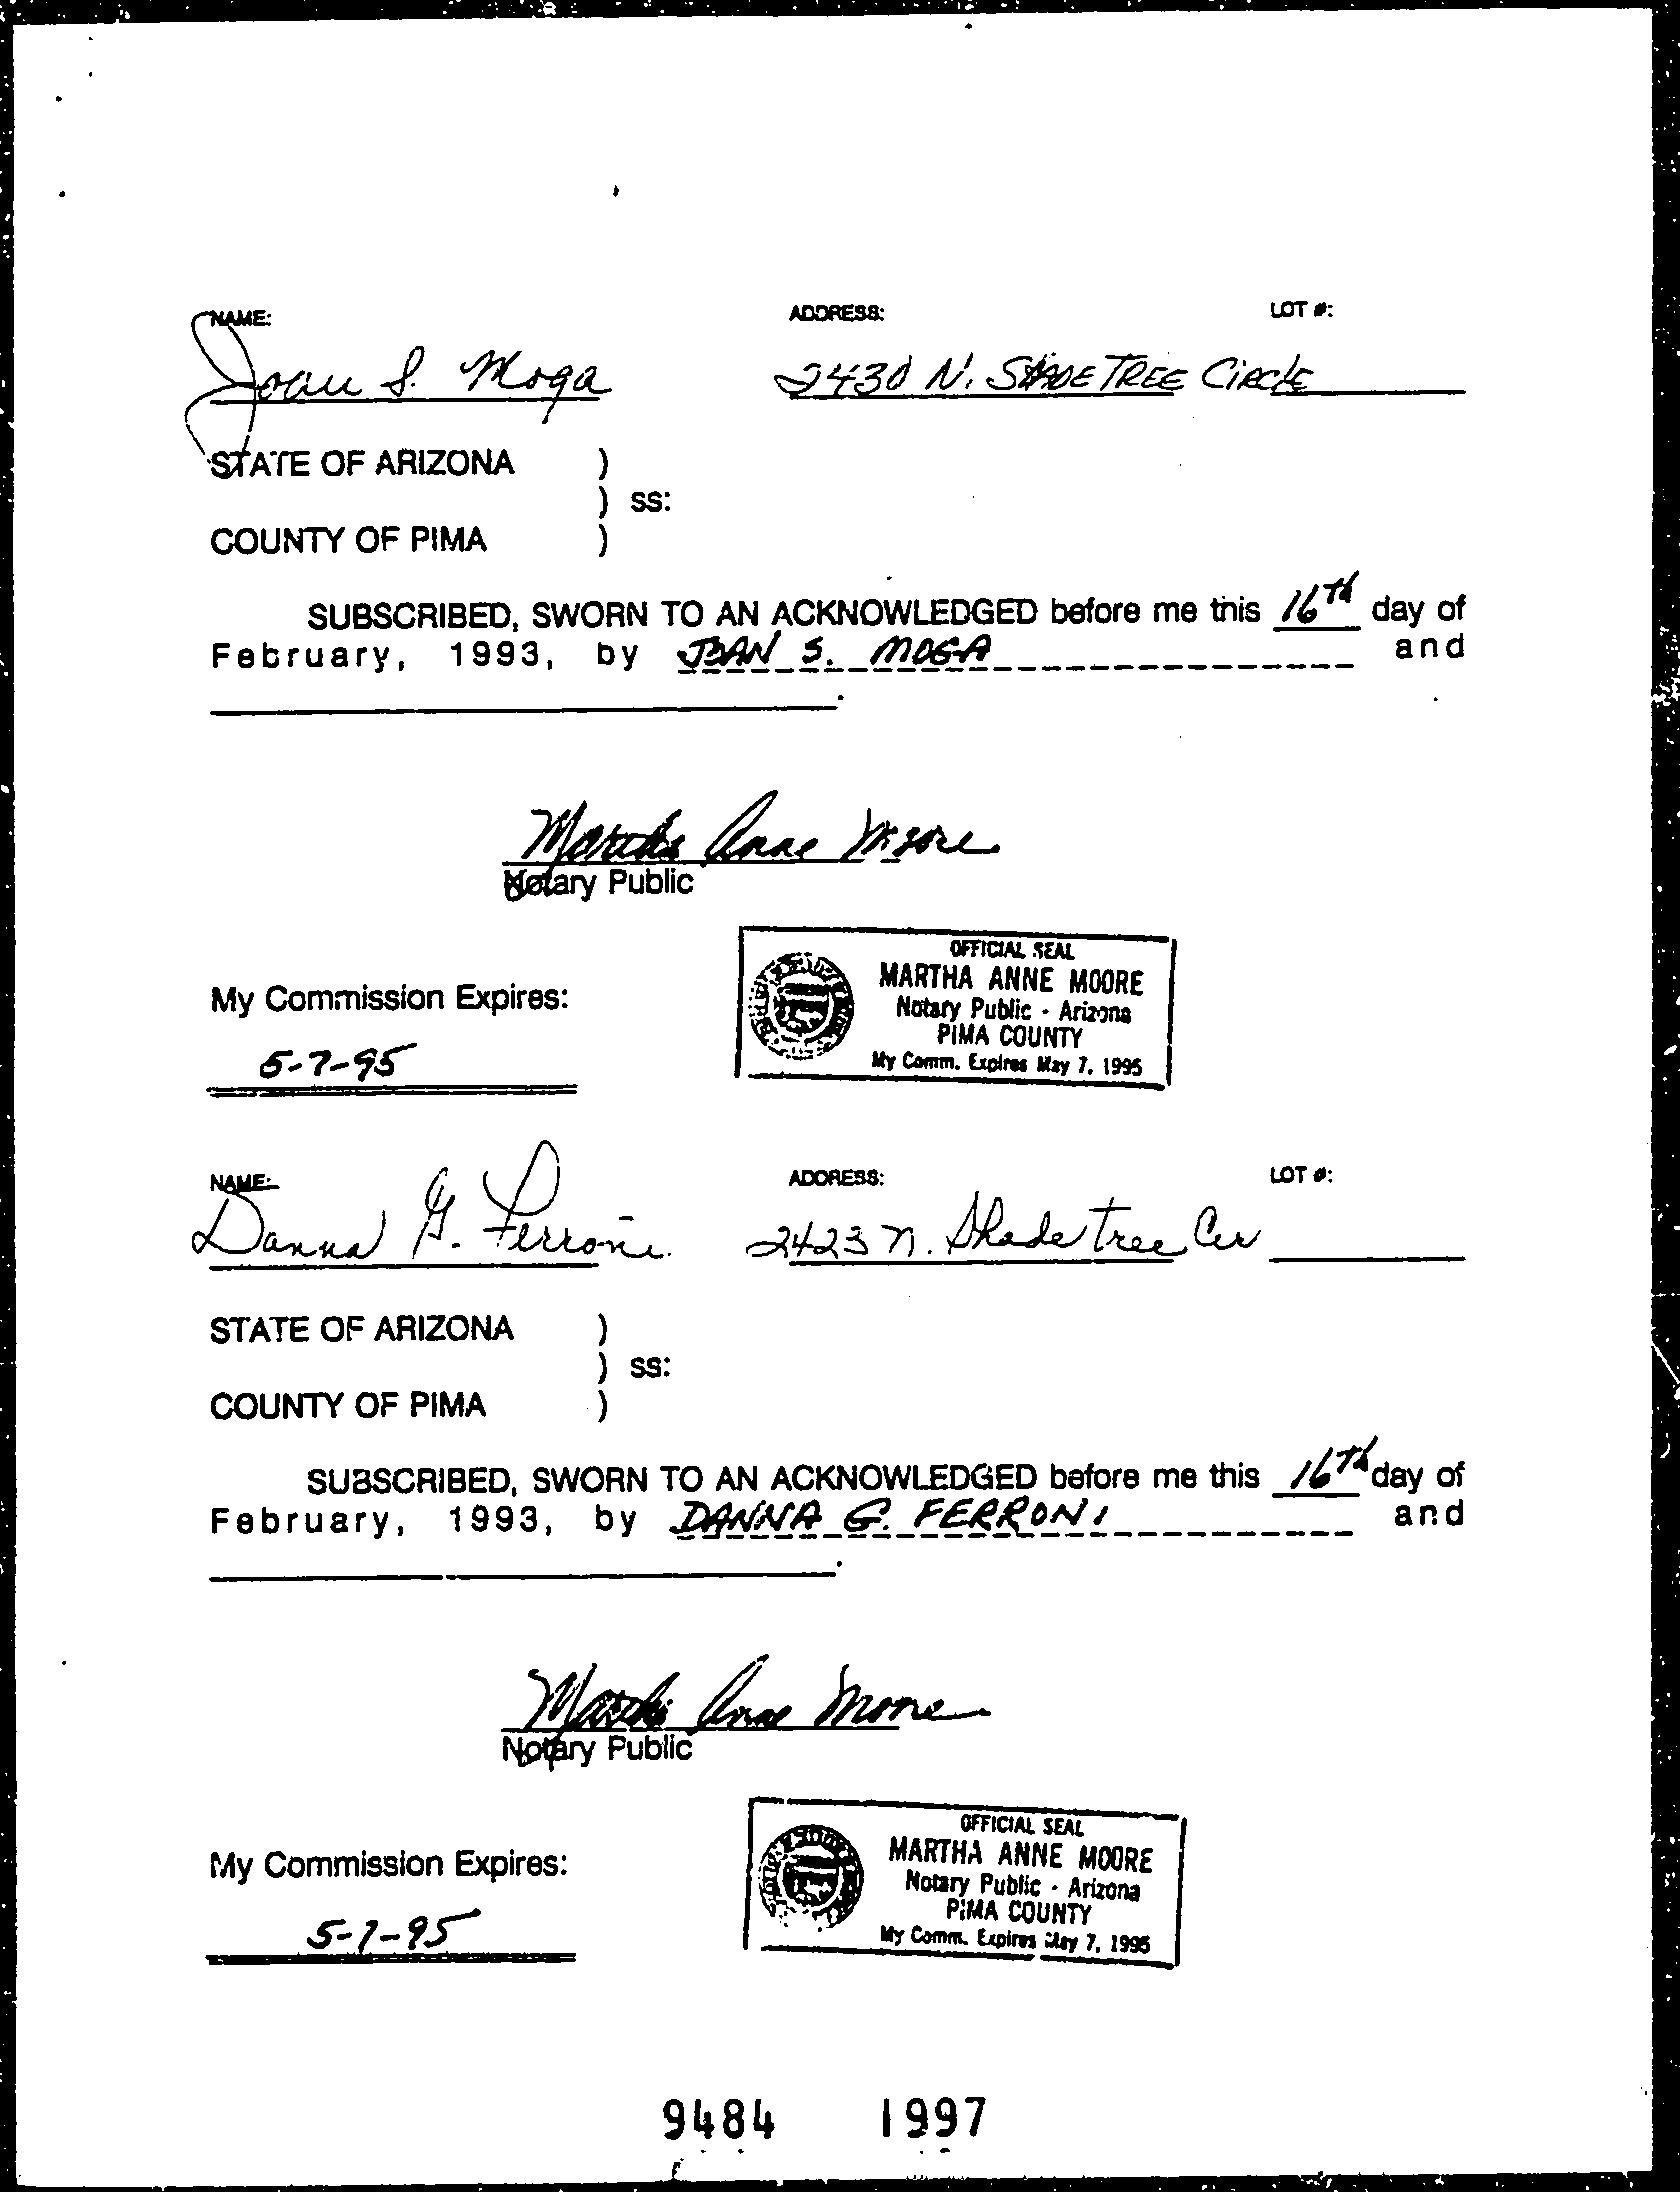 NAME: ADDRESS: LOT #:
Joan S. Moga 2430 N. SHADE TREE CIRCLE
STATE OF ARIZONA )
) ss:
COUNTY OF PIMA )
SUBSCRIBED, SWORN TO AN ACKNOWLEDGED before me this 16th day of
February, 1993, by JOAN S. MOGA and
.
Martha Anne Moore
Notary Public
OFFICIAL SEAL
MARTHA ANNE MOORE
Notary Public - Arizona
PIMA COUNTY
My Comm. Expires May 7, 1995
My Commission Expires:
5-7-95
NAME: ADDRESS: LOT #:
Danna G. Ferroni 2423 N. Shade Tree Cir
STATE OF ARIZONA )
) ss:
COUNTY OF PIMA )
SUBSCRIBED, SWORN TO AN ACKNOWLEDGED before me this 16th day of
February, 1993, by DANNA G. FERRONI and
.
Martha Anne Moore
Notary Public
OFFICIAL SEAL
MARTHA ANNE MOORE
Notary Public - Arizona
PIMA COUNTY
My Comm. Expires May 7, 1995
My Commission Expires:
5-7-95
9484 1997